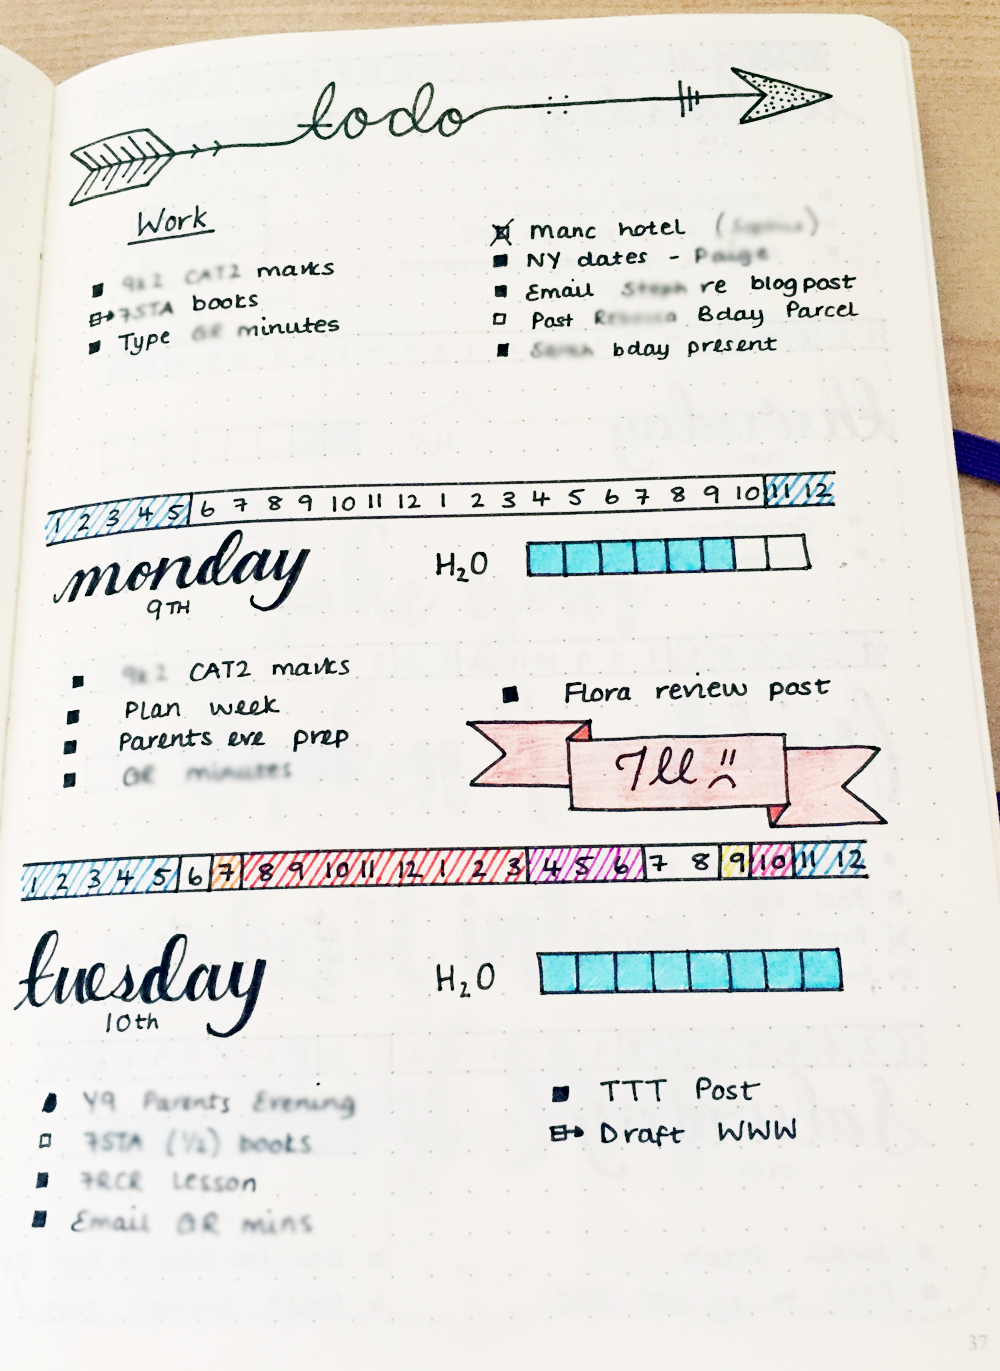 todo
Work
CAT2 marks
7STA books
Type minutes
Manc hotel
NY dates - Paige
Email Steph re blog post
Post Bday Parcel
bday present
1 2 3 4 5 6 7 8 9 10 11 12 1 2 3 4 5 6 7 8 9 10 11 12
monday
9TH
H2O
CAT2 marks
Plan week
Parents eve prep
GR minutes
Flora review post
Ill
1 2 3 4 5 6 7 8 9 10 11 12 1 2 3 4 5 6 7 8 9 10 11 12
tuesday
10th
H2O
Y9 Parents Evening
7STA (1/2) books
7RCR Lesson
Email GR mins
TTT Post
Draft WWW
37